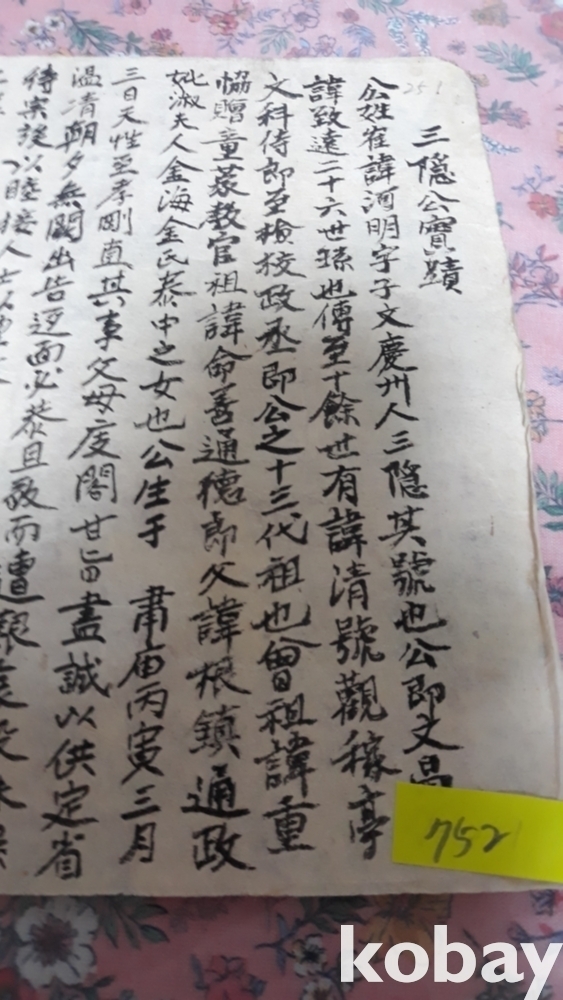 251
三隱公實蹟
公姓崔諱河明字子文慶州人三隱其號也公卽文昌
諱致遠二十六世孫也傳至十餘世有諱清號觀稼亭
文科侍郎至檢校政丞即公之十三代祖也曾祖諱重
恊贈童蒙教官祖諱命善通德郎父諱根鎮通政
妣淑夫人金海金氏泰中之女也公生于 肅庙丙寅三月
三日天性至孝剛直其事父母庋閣甘旨盡誠以供定省
温清朝夕無闕出告返面必恭且敬而遭親喪
以睦接人
752
kobay